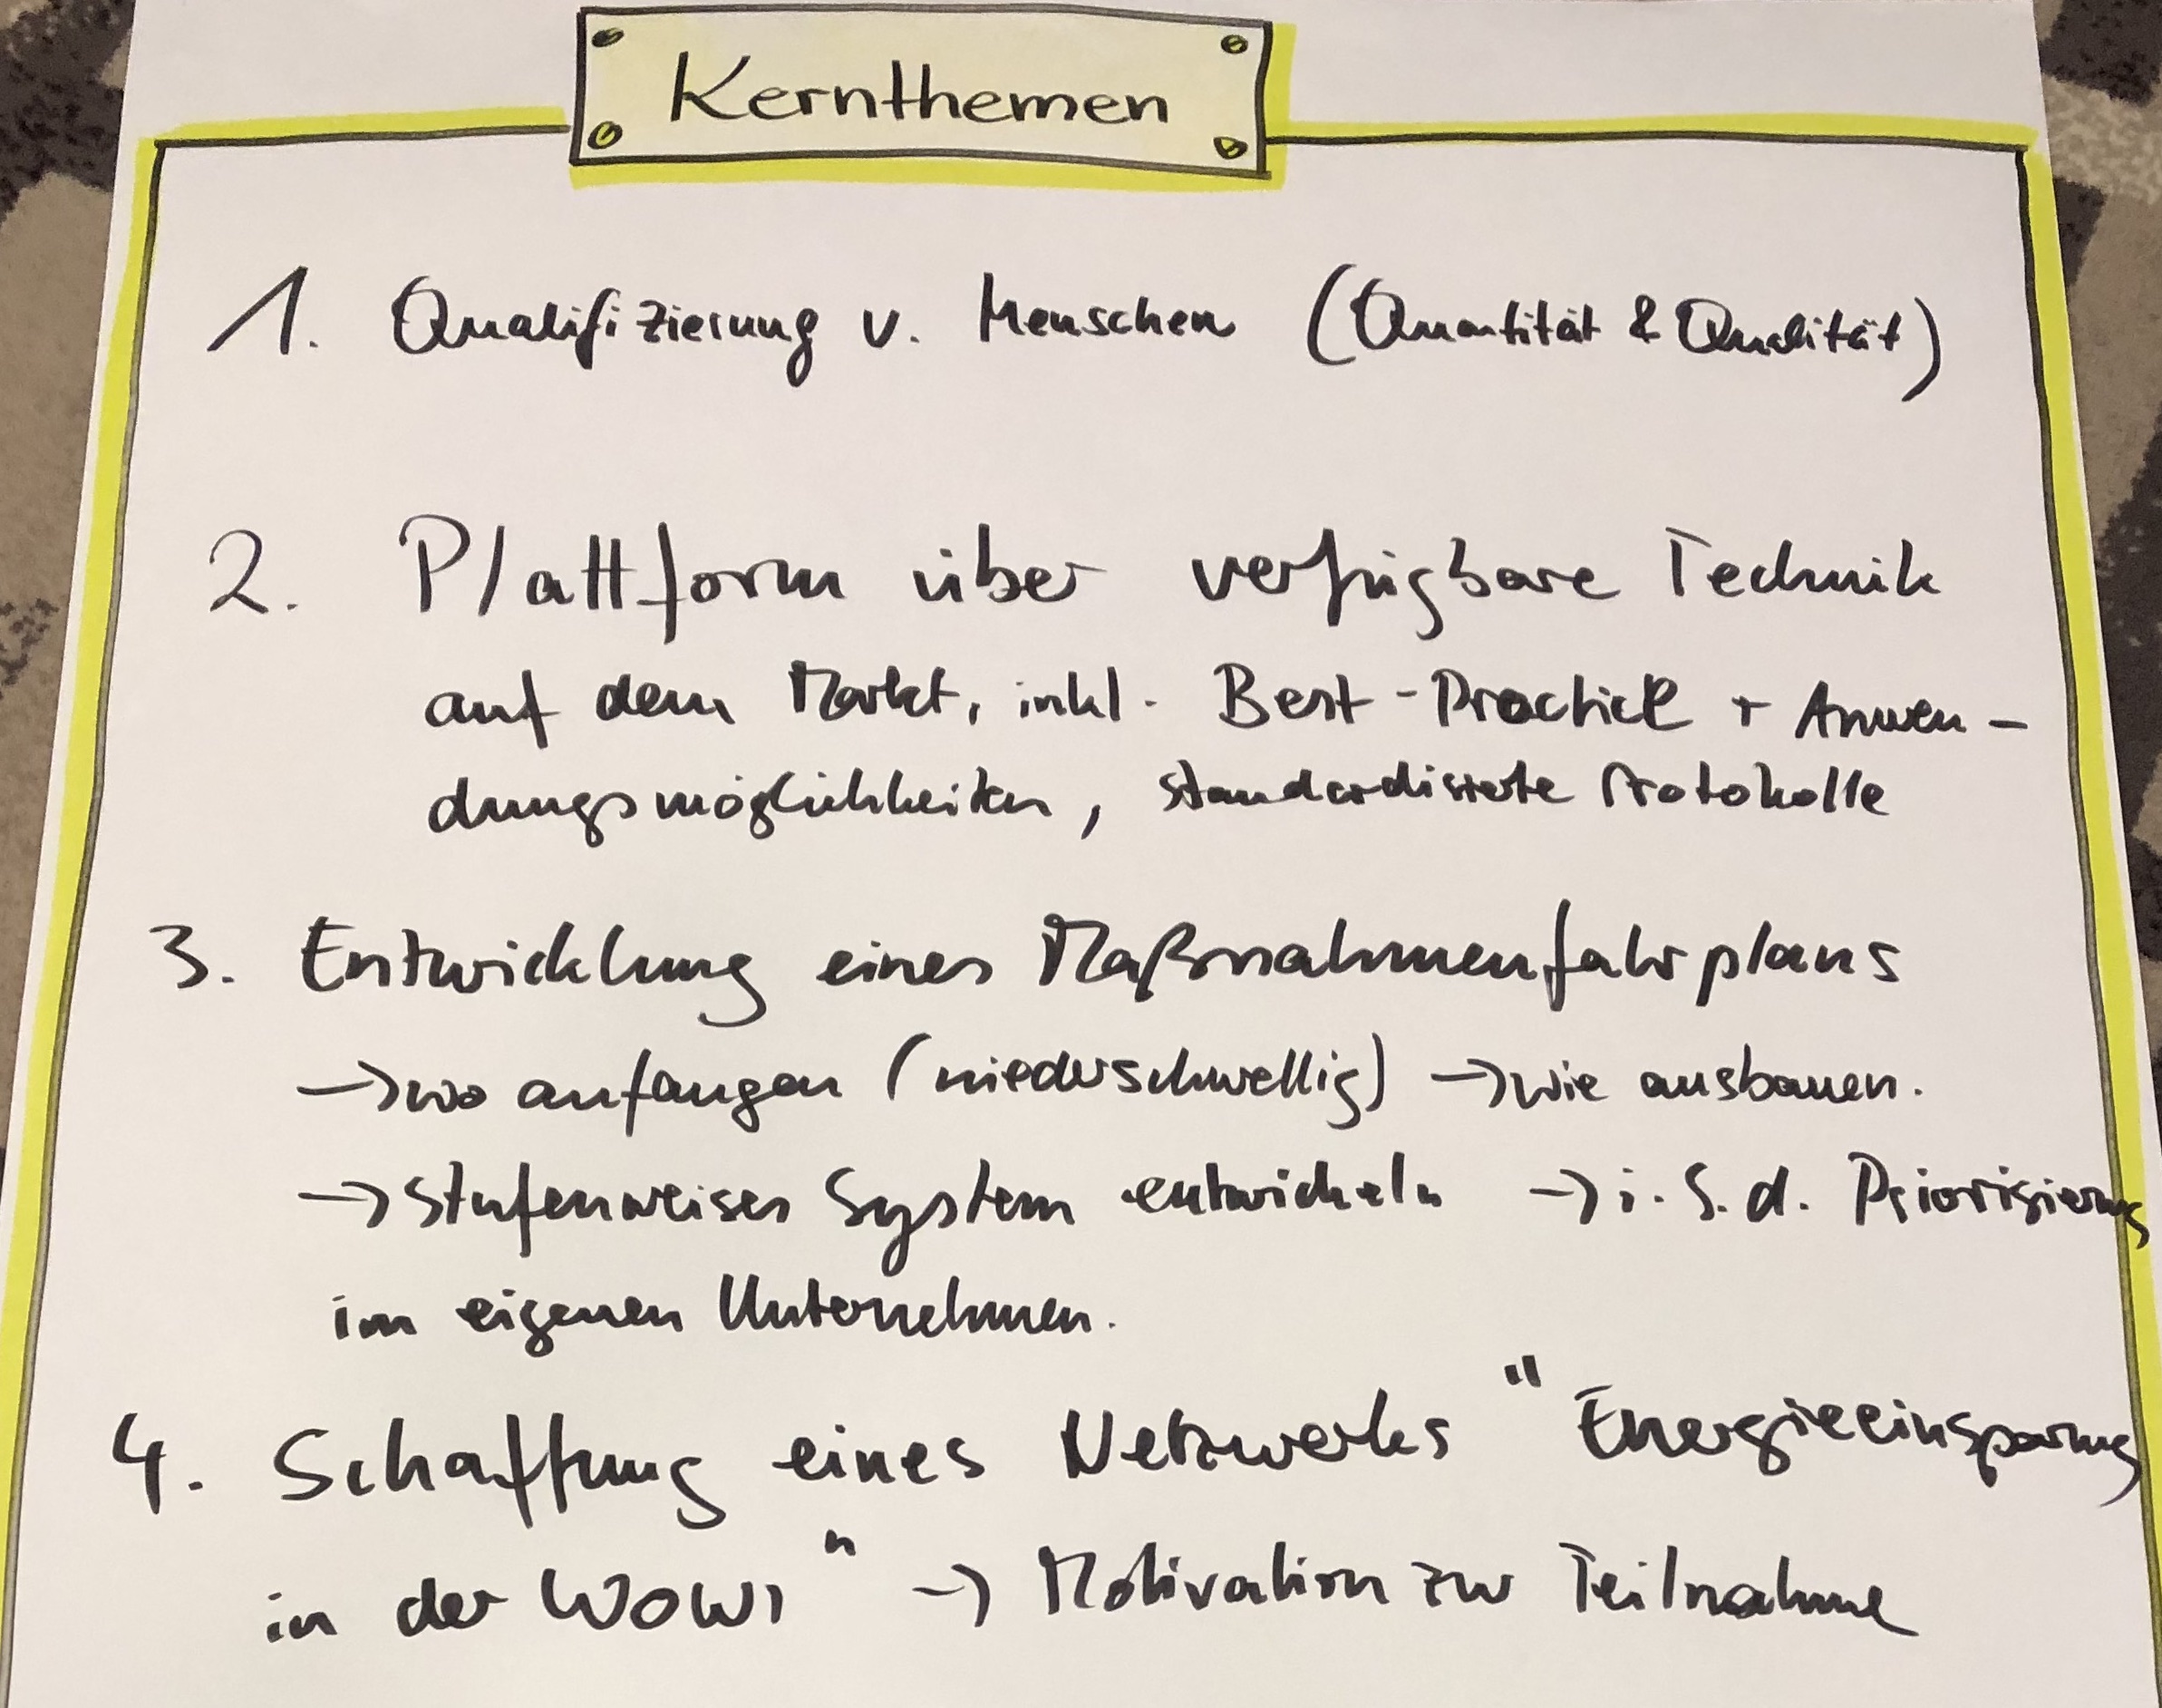 Kernthemen
1. Qualifizierung v. Menschen (Quantität & Qualität)
2. Plattform über verfügbare Technik
auf dem Markt, inkl. Best-Practice + Anwen-
dungsmöglichkeiten, standardisierte Protokolle
3. Entwicklung eines Maßnahmenfahrplans
→ wo anfangen (niederschwellig) → wie ausbauen.
→ Stufenweises System entwickeln → i.S.d. Priorisierung
im eigenen Unternehmen.
4. Schaffung eines Netzwerks "Energieeinsparung
in der WOWI" → Motivation zur Teilnahme